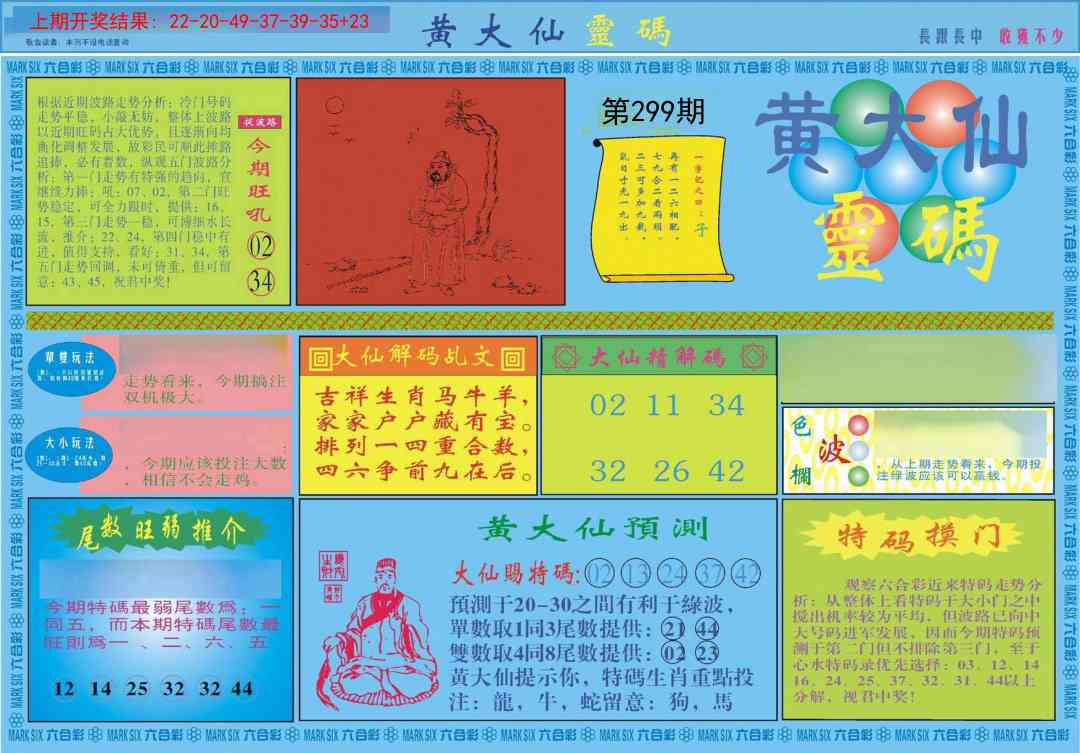 上期开奖结果: 22-20-49-37-39-35+23
敬告读者: 本刊不设电话查询
黄大仙靈碼
長跟長中 收獲不少
MARK SIX 六合彩
根据近期波路走势分析; 冷门号码
走势平稳, 小敲无妨, 整体上波路
以近期旺码占大优势, 且逐渐向均
衡化调整发展, 故彩民可顺此摔路
追捧, 必有着数, 纵观五门波路分
析; 第一门走势有特强的趋向, 宜
继续力捧; 吼: 07、02, 第二门旺
势稳定, 可全力跟时, 提供: 16、
15, 第三门走势一稳, 可博细水长
流, 推介; 22、24, 第四门稳中有
进, 值得支持, 看好; 31、34, 第
五门走势回调, 未可倚重, 但可留
意: 43、45, 祝君中奖!
捉波路
今期旺吼
02
34
第299期
一字记之曰: 子
再有一二六相配,
七九合二看两头,
二三可多加九载,
黄大仙
靈碼
單雙玩法
走势看来, 今期搞注
双机极大。
大小玩法
, 今期应该投注大数
, 相信不会走鸡。
大仙解码乩文
吉祥生肖马牛羊,
家家户户藏有宝。
排列一四重合数,
四六争前九在后。
大仙精解碼
02 11 34
32 26 42
色波欄
, 从上期走势看来, 今期投
注绿波应该可以赢钱。
尾数旺弱推介
今期特碼最弱尾數爲: 一
同五, 而本期特碼尾數最
旺則爲一、二、六、五
12 14 25 32 32 44
黄大仙預測
大仙賜特碼: 02 13 24 37 42
預測于20-30之間有利于綠波,
單數取1同3尾數提供: 21 44
雙數取4同8尾數提供: 02 23
黄大仙提示你, 特碼生肖重點投
注: 龍, 牛, 蛇留意: 狗, 馬
特码摸门
观察六合彩近来特码走势分
析: 从整体上看特码于大小门之中
搅出机率较为平均, 但波路已向中
大号码进军发展, 因而今期特码预
测于第二门但不排除第三门, 至于
心水特码录优先选择: 03、12、14
16、24、25、37、32、31、44以上
分解, 视君中奖!